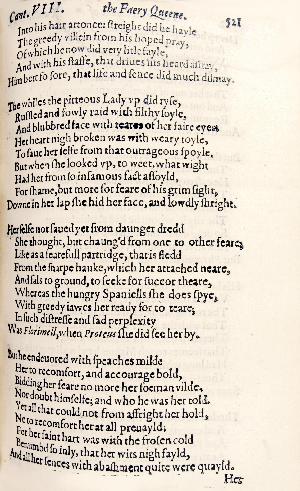 Cant. VIII. the Faery Queene. 521
Into his hart attonce: streight did he hayle
The greedy villein from his hoped pray,
Of which he now did very litle fayle,
And with his staffe, that driues his heard astray,
Him bett so sore, that life and sence did much dismay.
The whiles the pitteous Lady vp did ryse,
Ruffled and fowly raid with filthy soyle,
And blubbred face with teares of her faire eyes:
Her heart nigh broken was with weary toyle,
To saue her selfe from that outrageous spoyle,
But when she looked vp, to weet, what wight
Had her from so infamous fact assoyld,
For shame, but more for feare of his grim sight,
Downe in her lap she hid her face, and lowdly shright.
Her selfe not saued yet from daunger dredd
She thought, but chaung'd from one to other feare;
Like as a fearefull partridge, that is fledd
From the sharpe hauke, which her attached neare,
And fals to ground, to seeke for succor theare,
Whereas the hungry Spaniells she does spye,
With greedy iawes her ready for to teare;
In such distresse and sad perplexity
Was Florimell, when Proteus she did see her by.
But he endeuored with speaches milde
Her to recomfort, and accourage bold,
Bidding her feare no more her foeman vilde,
Nor doubt himselfe; and who he was her told.
Yet all that could not from affright her hold,
Ne to recomfort her at all preuayld;
For her faint hart was with the frosen cold
Benumbd so inly, that her wits nigh fayld,
And all her sences with abashment quite were quayld.
Her